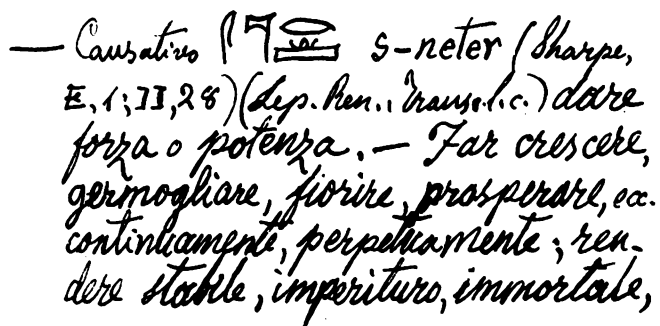 — Causativo s-neter (Sharpe,
E, 1; II, 28) (Lep. Ren., Trans. l. c.) dare
forza o potenza. — Far crescere,
germogliare, fiorire, prosperare, ec.
continuamente, perpetuamente; ren-
dere stabile, imperituro, immortale,